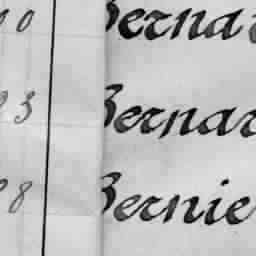 0 Berna
3 Bernar
8 Bernie